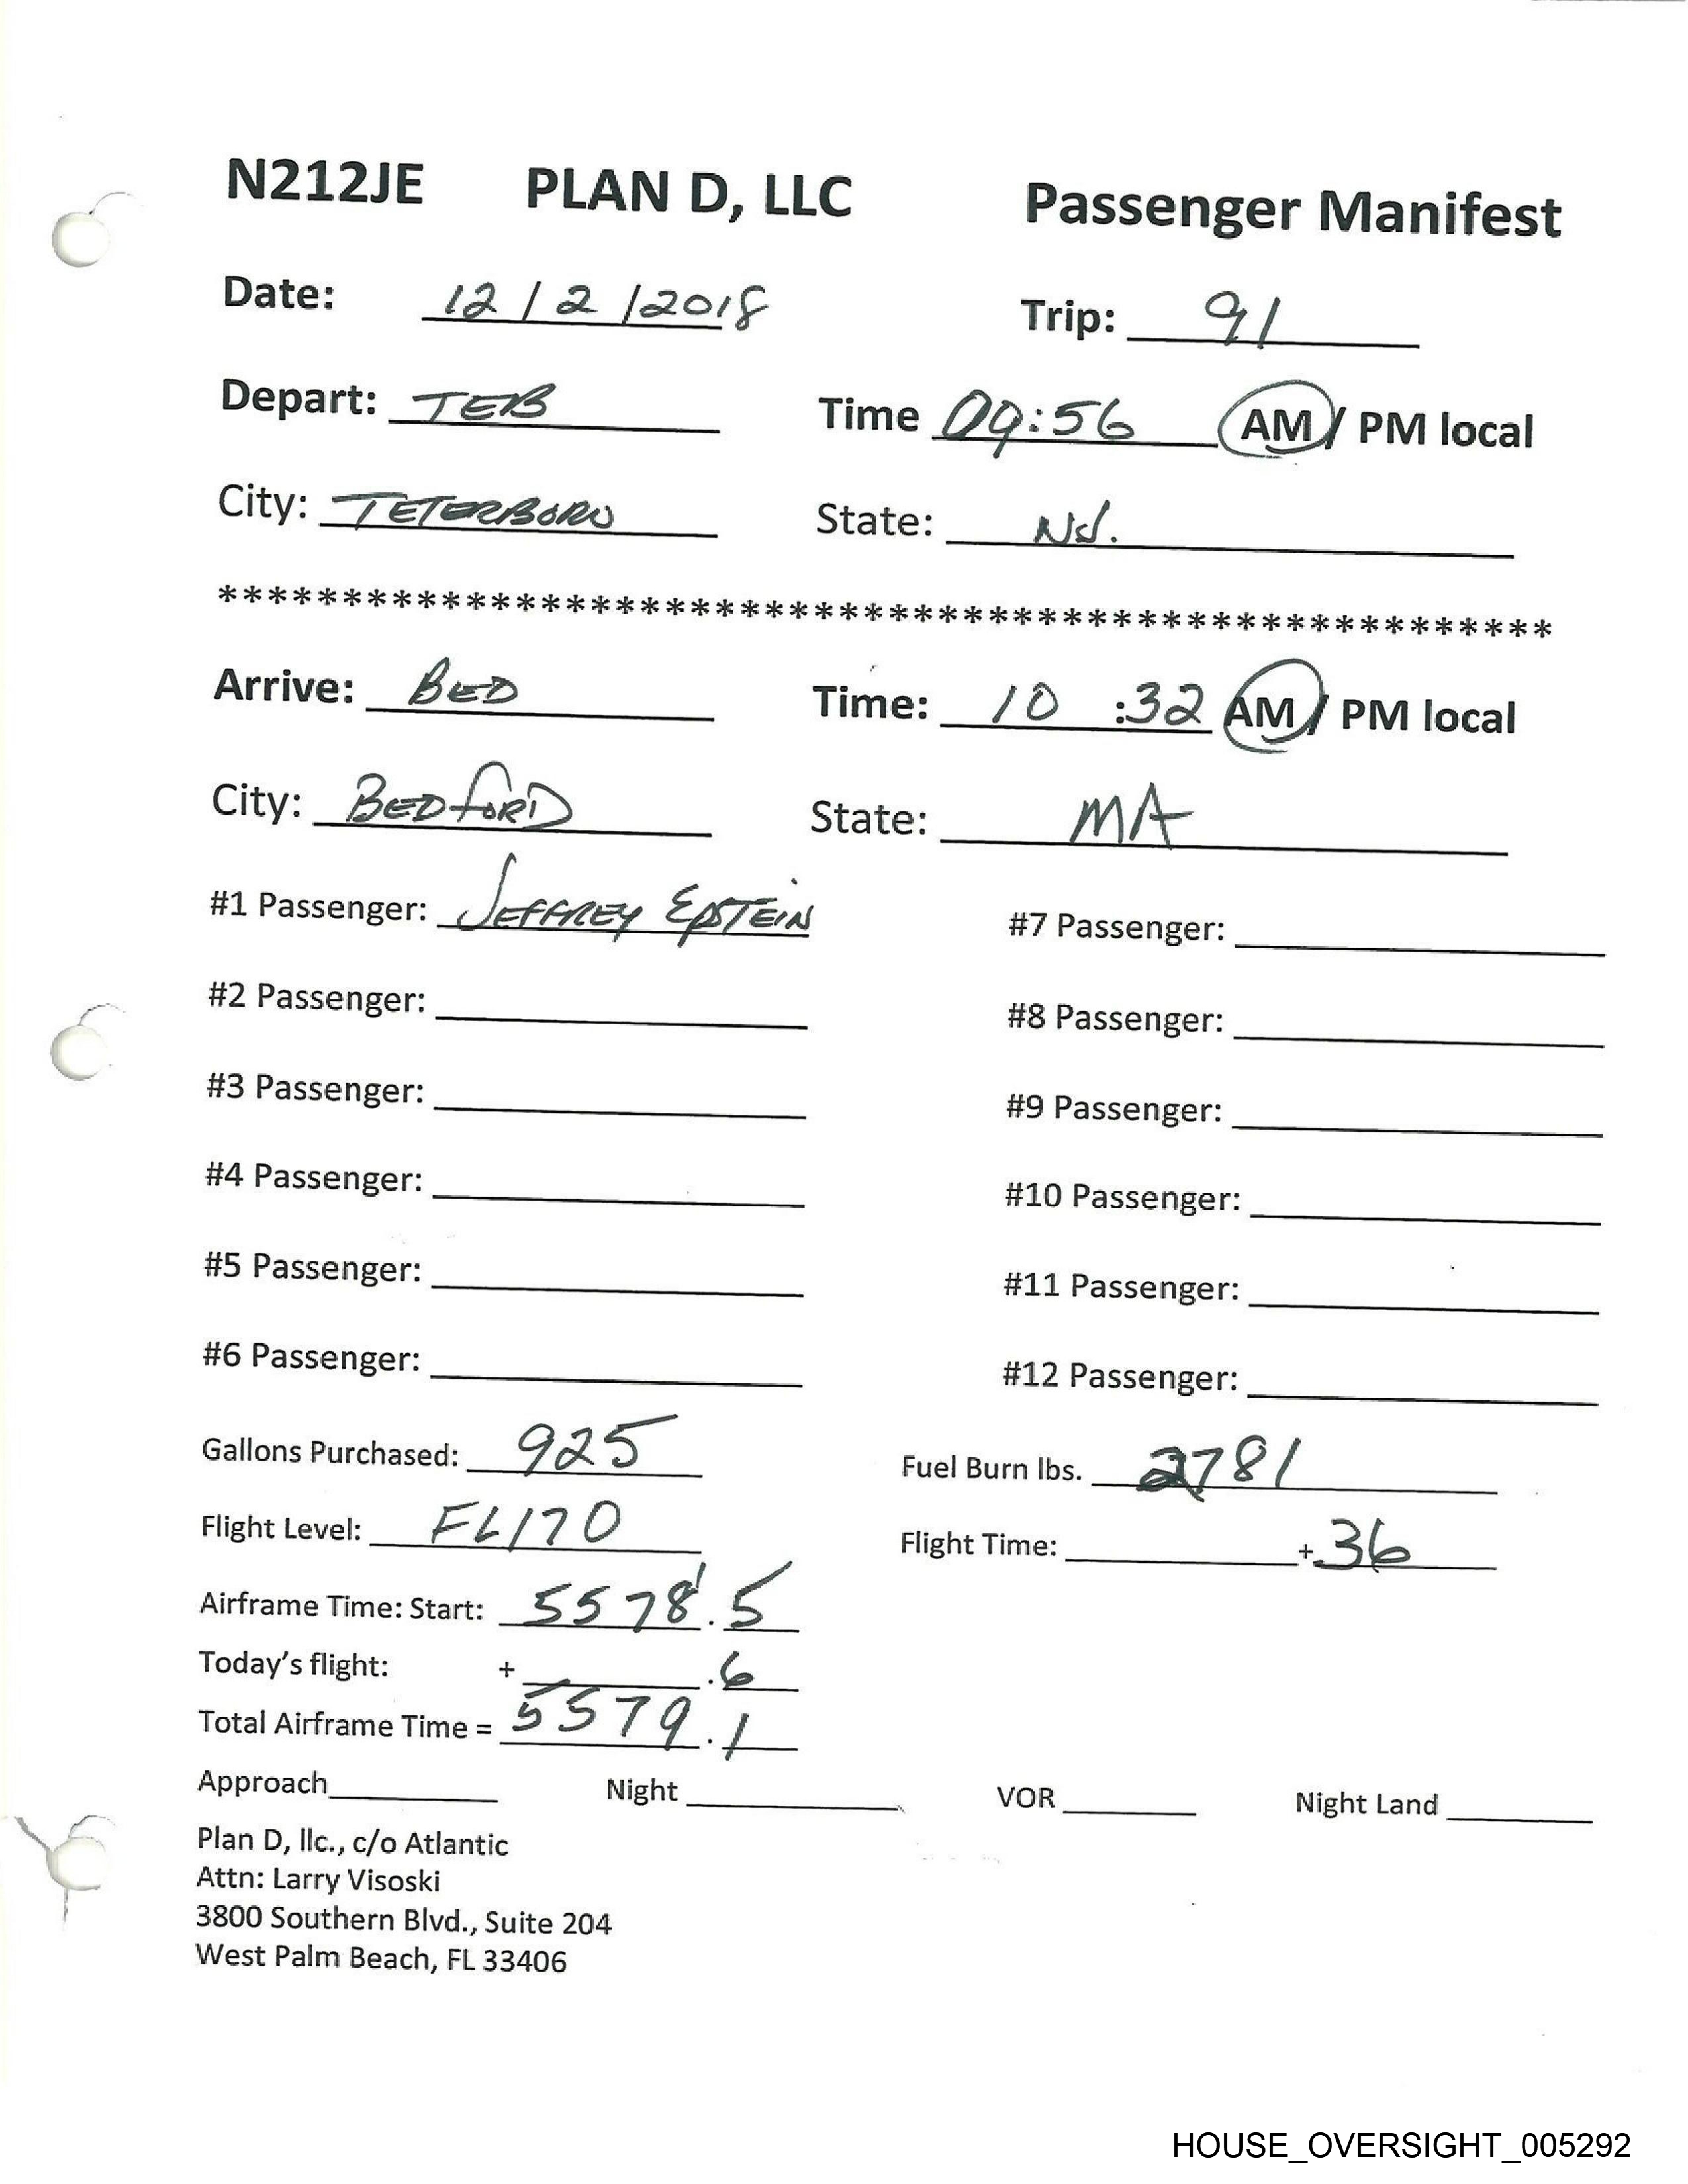 N212JE PLAN D, LLC Passenger Manifest
Date: 12/2/2018 Trip: 91
Depart: TEB Time 09:56 AM / PM local
City: TETERBORO State: NJ.
******************************************************
Arrive: BED Time: 10:32 AM / PM local
City: BEDFORD State: MA
#1 Passenger: JEFFREY EPSTEIN #7 Passenger:
#2 Passenger: #8 Passenger:
#3 Passenger: #9 Passenger:
#4 Passenger: #10 Passenger:
#5 Passenger: #11 Passenger:
#6 Passenger: #12 Passenger:
Gallons Purchased: 925 Fuel Burn lbs. 2781
Flight Level: FL170 Flight Time: +36
Airframe Time: Start: 5578.5
Today's flight: + .6
Total Airframe Time = 5579.1
Approach Night VOR Night Land
Plan D, llc., c/o Atlantic
Attn: Larry Visoski
3800 Southern Blvd., Suite 204
West Palm Beach, FL 33406
HOUSE_OVERSIGHT_005292